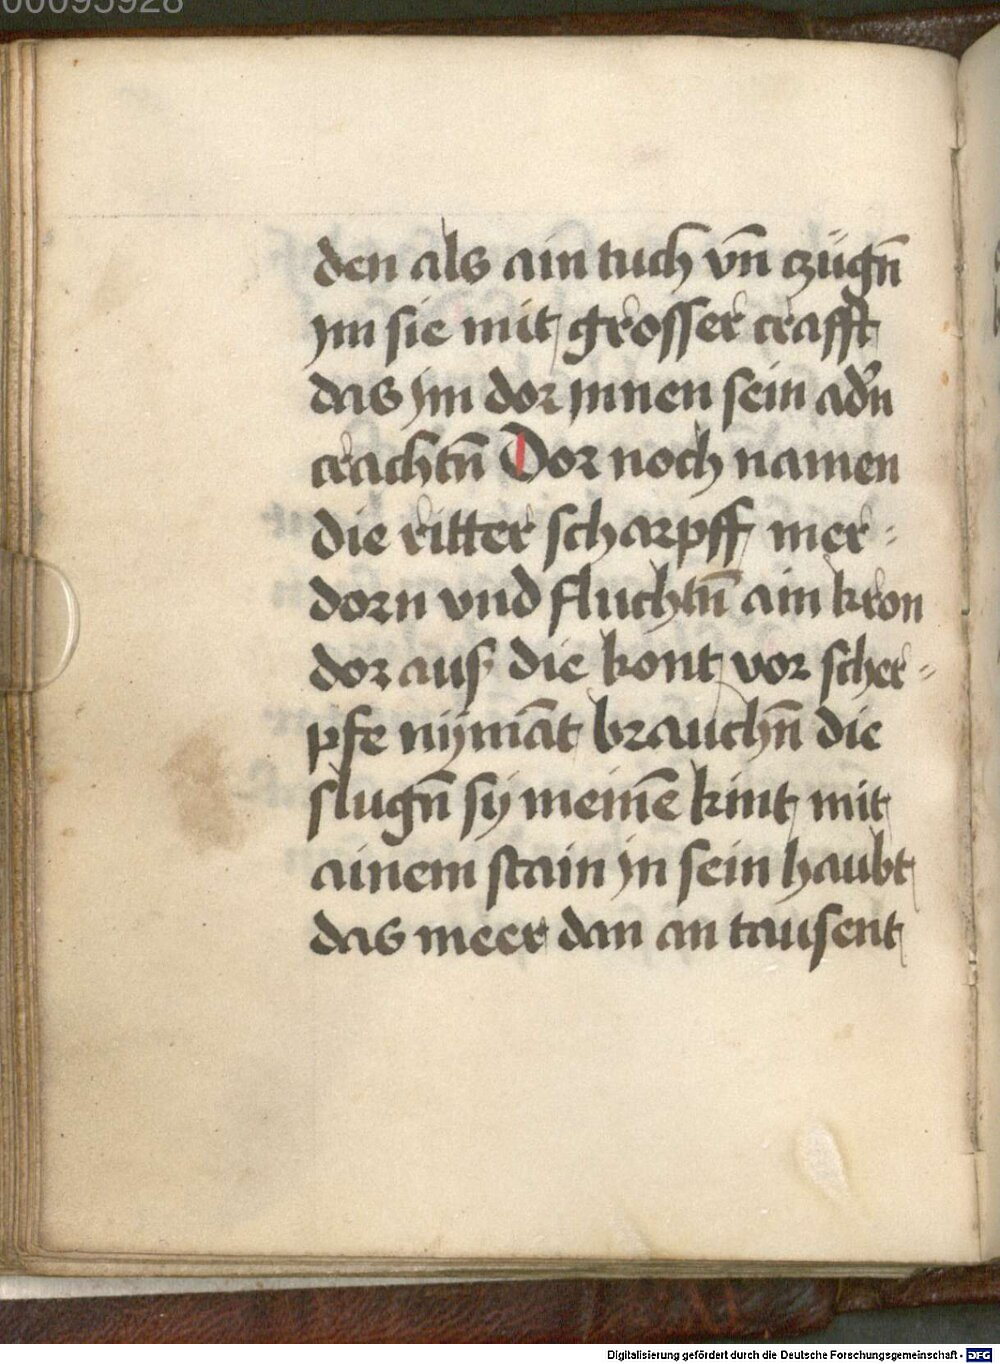 00095928
den als ain tuch vn̄ czügn̄
ym sie mit grosser crafft
das ym dor ynnen sein adn̄
crachtn̄ Dor noch namen
die ritter scharpff mer-
dorn vnd fluchtn̄ ain kron
dor aus die kont vor scher=
pfe nymāt brauchn̄ die
slugn̄ sy meinē kint mit
ainem stain in sein haubt
das meer dan an tausent
Digitalisierung gefördert durch die Deutsche Forschungsgemeinschaft - DFG